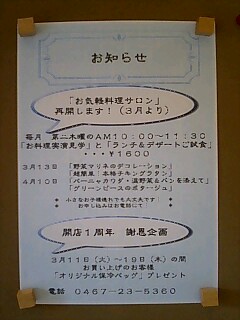 お知らせ
「お気軽料理サロン」
再開します！（３月より）
毎月　第二木曜のＡＭ１０：００～１１：３０
「お料理実演見学」と「ランチ＆デザートご試食」
・・・¥１６００
３月１３日　「野菜マリネのデコレーション」
「超簡単　本格チキングラタン」
４月１０日　「バーニャカウダ・温野菜＆パンを添えて」
「グリーンピースのポタージュ」
＊　小さなお子様連れでも大丈夫です　＊
お申し込みはお電話にて
開店１周年　謝恩企画
３月１１日（火）～１９日（水）の間
お買い上げのお客様
「オリジナル保冷バッグ」プレゼント
電話　０４６７－２３－５３６０